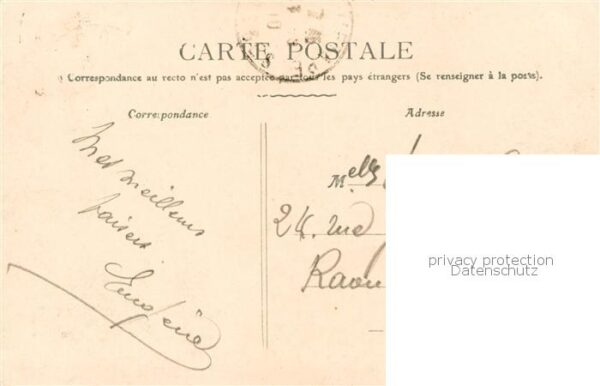 CARTE POSTALE
Correspondance au recto n'est pas acceptée par tous les pays étrangers (Se renseigner à la poste).
Correspondance
Adresse
Mes meilleurs
baisers
Eugénie
Melle
24. rue
Raou
privacy protection
Datenschutz